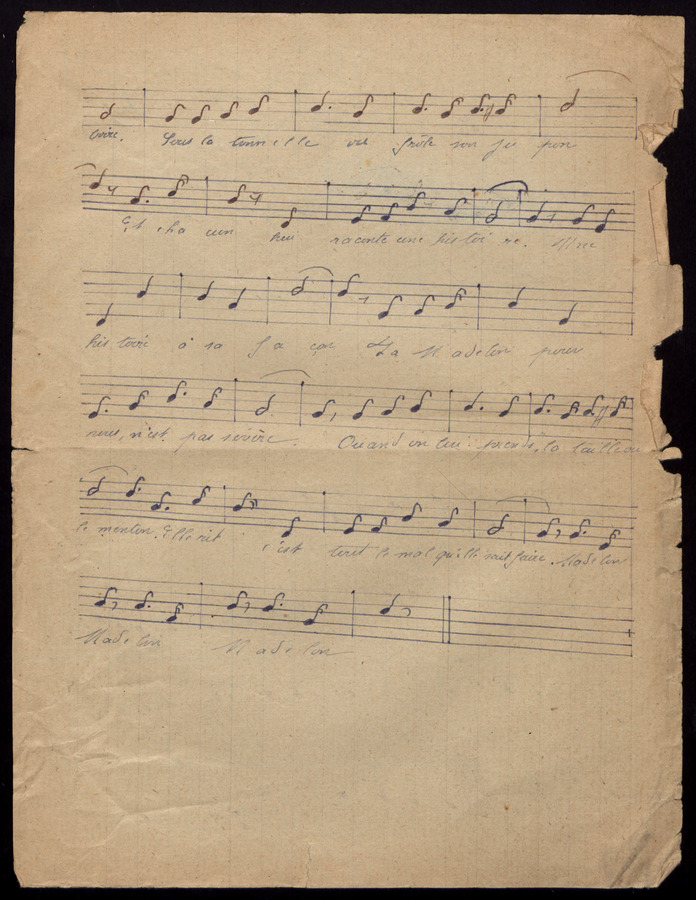 boire. Sous la tonnelle on frôle son ju pon
Et cha cun lui raconte une his toi re. Une
his toire à sa fa çon La Madelon pour
nous, n'est pas sévère. Quand on lui prends, la taille ou
le menton. Elle rit c'est tout le mal qu'elle sait faire. Madelon
Made lon Made lon